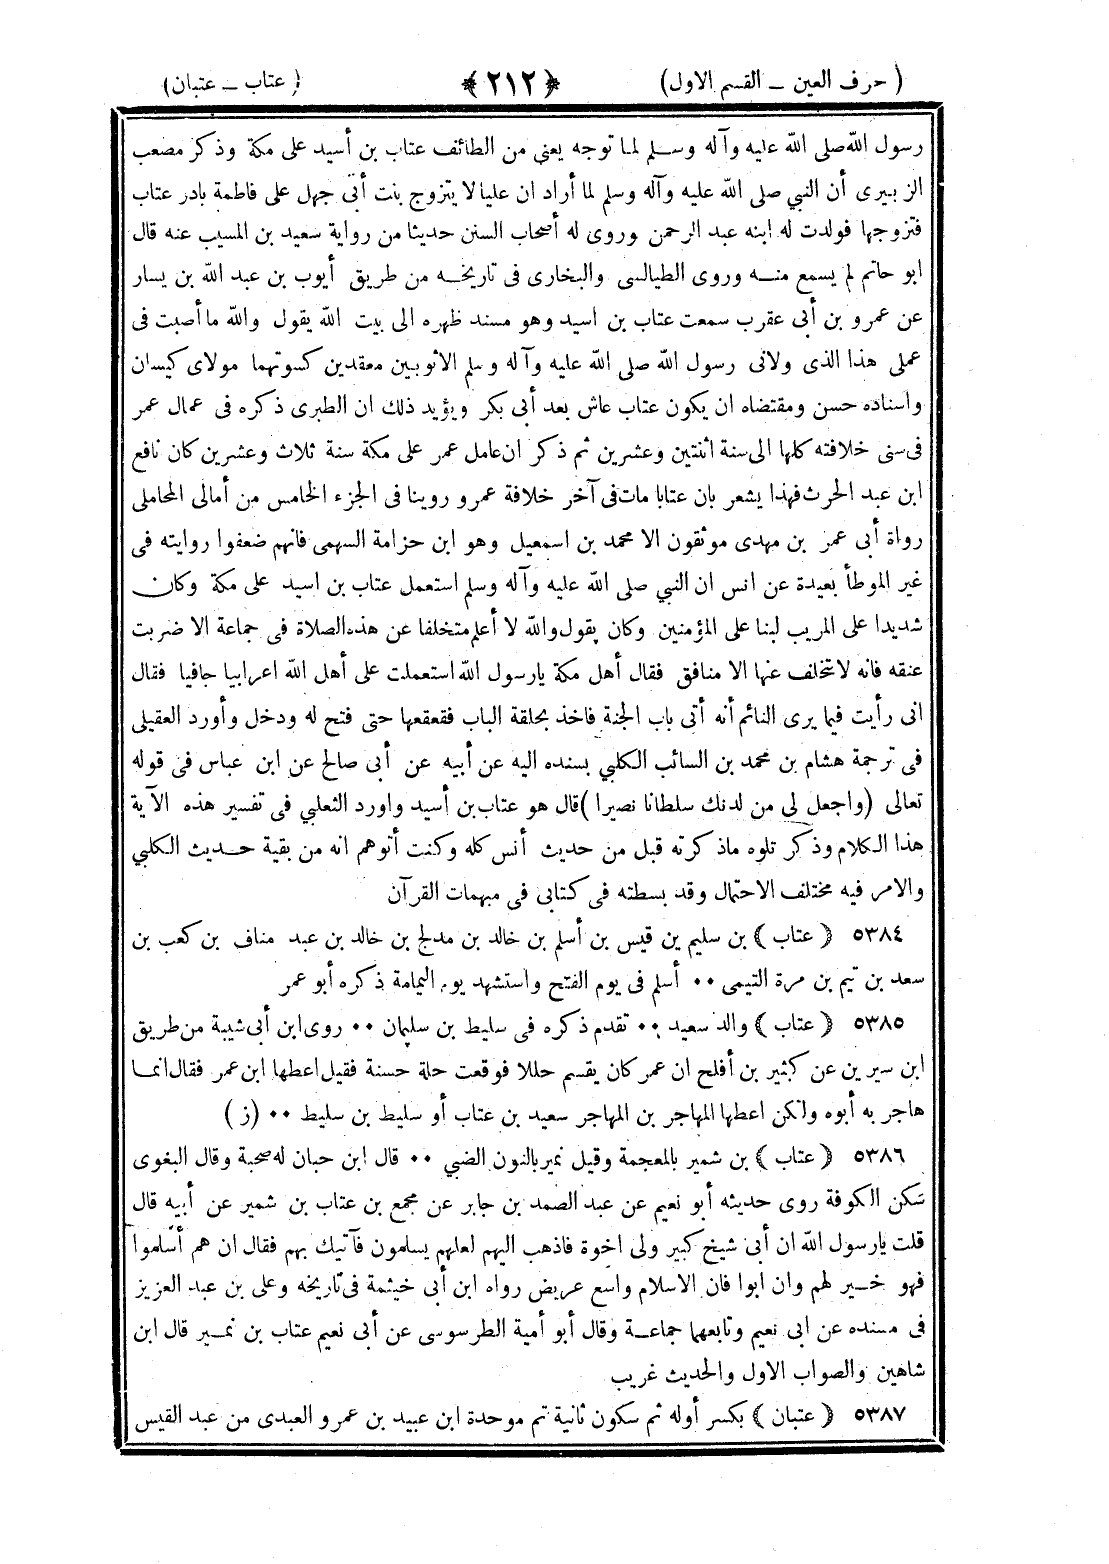 ( حرف العين ـ القسم الاول) ﴿٢١٢﴾ ( عتاب ـ عتبان)
رسول الله صلى الله عليه وآله وسلم لما توجه يعني من الطائف عتاب بن أسيد على مكة وذكر مصعب
الزبيرى أن النبي صلى الله عليه وآله وسلم لما أراد ان عليا لا يتزوج بنت أبى جهل على فاطمة بادر عتاب
فتزوجها فولدت له ابنه عبد الرحمن وروى له أصحاب السنن حديثا من رواية سعيد بن المسيب عنه قال
ابو حاتم لم يسمع منه وروى الطيالسى والبخارى فى تاريخه من طريق أيوب بن عبد الله بن يسار
عن عمرو بن أبى عقرب سمعت عتاب بن اسيد وهو مسند ظهره الى بيت الله يقول والله ما أصبت فى
عملى هذا الذى ولانى رسول الله صلى الله عليه وآله وسلم الاثوبين معقدين كسوتهما مولاى كيسان
واسناده حسن ومقتضاه ان يكون عتاب عاش بعد أبى بكر ويؤيد ذلك ان الطبرى ذكره فى عمال عمر
فى سنى خلافته كلها الى سنة اثنتين وعشرين ثم ذكر ان عامل عمر على مكة سنة ثلاث وعشرين كان نافع
ابن عبد الحرث فهذا يشعر بان عتابا مات فى آخر خلافة عمر وروينا فى الجزء الخامس من أمالى المحاملى
رواة أبى عمر بن مهدى موثقون الا محمد بن اسمعيل وهو ابن حزامة السهمى فانهم ضعفوا روايته فى
غير الموطأ بعيدة عن انس ان النبي صلى الله عليه وآله وسلم استعمل عتاب بن اسيد على مكة وكان
شديدا على المريب لينا على المؤمنين وكان يقول والله لا أعلم متخلفا عن هذه الصلاة فى جماعة الا ضربت
عنقه فانه لا تخلف عنها الا منافق فقال أهل مكة يارسول الله استعملت على أهل الله اعرابيا جافيا فقال
انى رأيت فيما يرى النائم أنه أتى باب الجنة فاخذ بحلقة الباب فقعقعها حتى فتح له ودخل وأورد العقيلى
فى ترجمة هشام بن محمد بن السائب الكلبي بسنده اليه عن أبيه عن أبى صالح عن ابن عباس فى قوله
تعالى (واجعل لى من لدنك سلطانا نصيرا) قال هو عتاب بن أسيد واورد الثعلبي فى تفسير هذه الآية
هذا الكلام وذكر تلوه ماذكرته قبل من حديث أنس كله وكنت أتوهم انه من بقية حديث الكلبي
والامر فيه مختلف الاحتمال وقد بسطته فى كتابى فى مبهمات القرآن
٥٣٨٤ ﴿ عتاب ﴾ بن سليم بن قيس بن أسلم بن خالد بن مدلج بن خالد بن عبد مناف بن كعب بن
سعد بن تيم بن مرة التيمى ٠٠ أسلم فى يوم الفتح واستشهد يوم اليمامة ذكره أبو عمر
٥٣٨٥ ﴿ عتاب ﴾ والد سعيد ٠٠ تقدم ذكره فى سليط بن سليمان ٠٠ روى ابن أبى شيبة من طريق
ابن سيرين عن كثير بن أفلح ان عمر كان يقسم حللا فوقعت حلة حسنة فقيل اعطها ابن عمر فقال انما
هاجر به أبوه ولكن اعطها المهاجر بن المهاجر سعيد بن عتاب أو سليط بن سليط ٠٠ (ز)
٥٣٨٦ ﴿ عتاب ﴾ بن شمير بالمعجمة وقيل نمير بالنون الضبي ٠٠ قال ابن حبان له صحبة وقال البغوى
سكن الكوفة روى حديثه أبو نعيم عن عبد الصمد بن جابر عن مجمع بن عتاب بن شمير عن أبيه قال
قلت يارسول الله ان أبى شيخ كبير ولى اخوة فاذهب اليهم لعلهم يسلمون فآتيك بهم فقال ان هم أسلموا
فهو خير لهم وان ابوا فان الاسلام واسع عريض رواه ابن أبى خيثمة فى تاريخه وعلى بن عبد العزيز
فى مسنده عن ابى نعيم وتابعهما جماعة وقال أبو أمية الطرسوسى عن أبى نعيم عتاب بن نمير قال ابن
شاهين والصواب الاول والحديث غريب
٥٣٨٧ ﴿ عتبان ﴾ بكسر أوله ثم سكون ثانية ثم موحدة ابن عبيد بن عمرو العبدى من عبد القيس